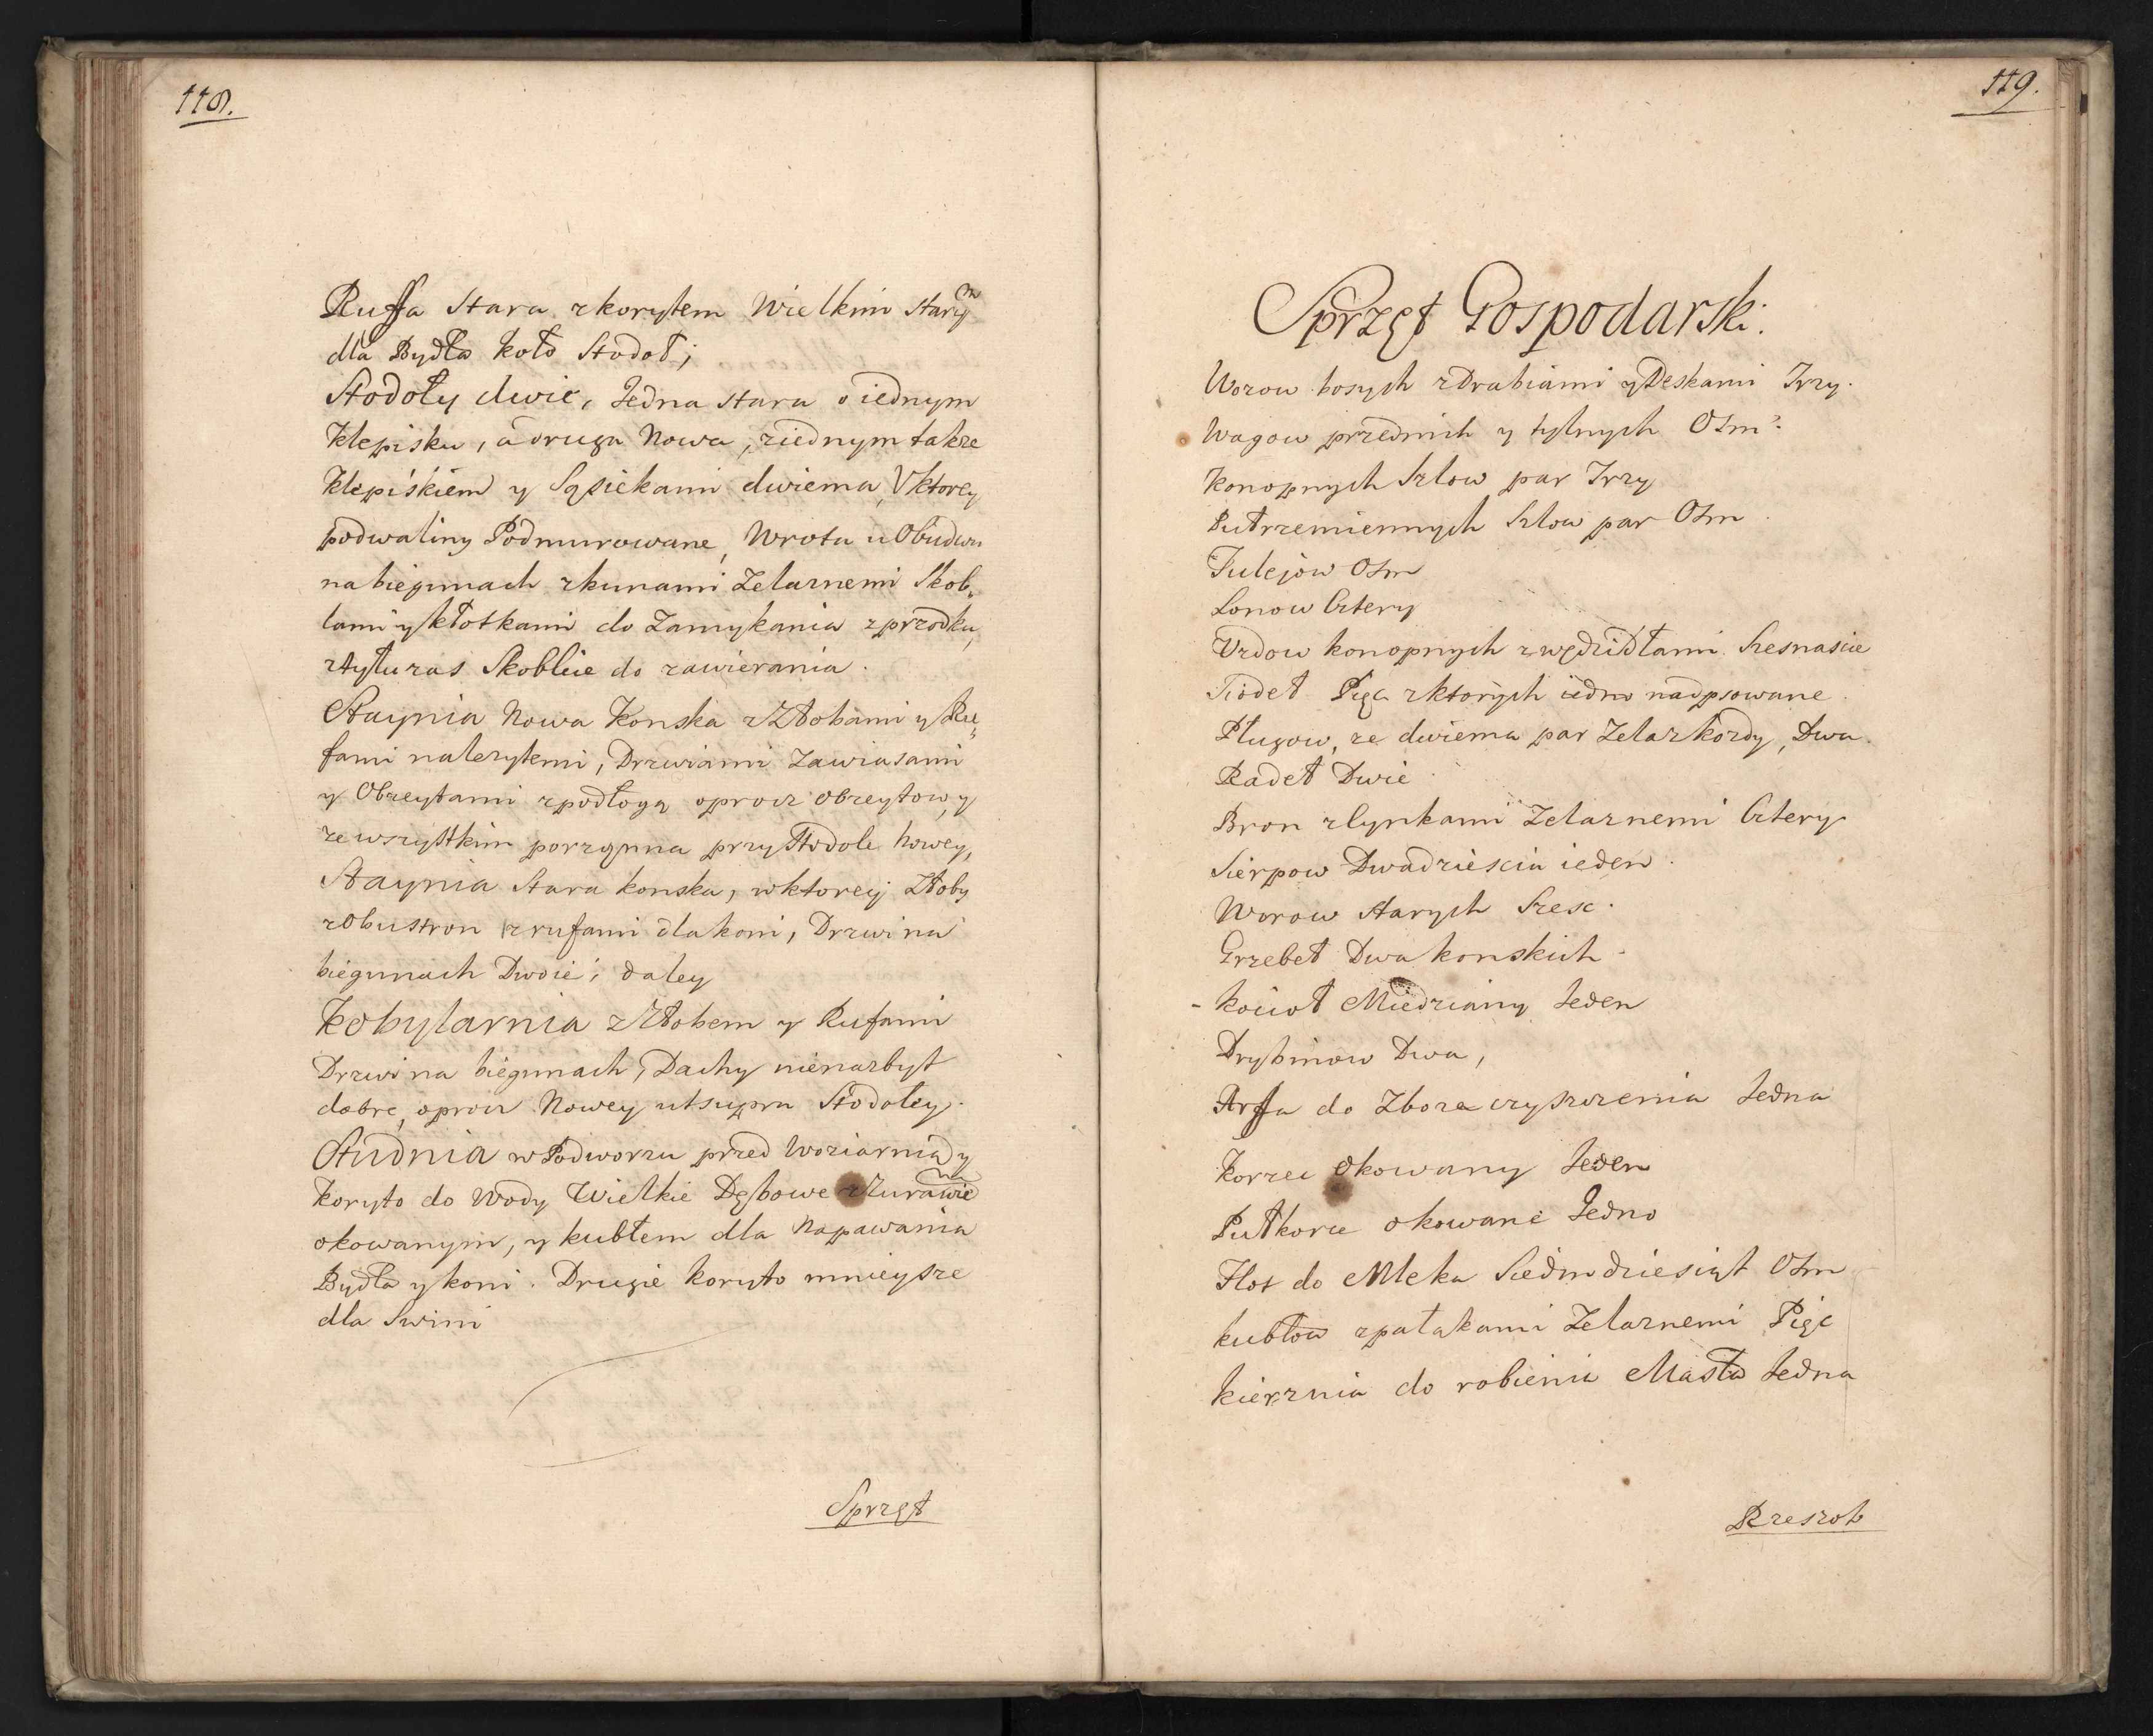 118.
Ruffa Stara z korytem Wielkim starym
dla Bydła koło Stodoł;
Stodoły dwie, Jedna stara o iednym
klepisku, a druga Nowa, z iednym takze
klepiskiem y Sąsiekami dwiema, V ktorey
podwaliny Podmurowane, Wrota u Obudwu
na biegunach z kunami Zelaznemi Skob„
lami y kłotkami do Zamykania z przodku,
z tyłu zas Skoblice do zawierania.
Staynia Nowa Konska z Złobami y Ru„
fami nalezytemi, Drzwiami Zawiasami
y Obreytami z podłogą oprocz obreytow, y
ze wszystkim porządna przy Stodole Nowey,
Staynia Stara konska, w ktorey Złoby
z Obu stron z rufami dla koni, Drzwi na
biegunach Dwoie; daley
Kobylarnia z Złobem y Rufami
Drzwi na biegunach, Dachy nienazbyt
dobre, oprocz Nowey ut supra Stodoley.
Studnia w Podworzu przed Woziarnią y
koryto do Wody Wielkie Dębowe z Zurawiem
okowanym, y kubłem dla Napawania
Bydła y koni. Drugie koryto mnieysze
dla Swini
Sprzęt
119.
Sprzęt Gospodarski.
Wozow bosych z Drabiami y Deskami Trzy.
Wagow przednich y tylnych Osm.
Konopnych Szlow par Trzy
Putrzemiennych Szlow par Osm.
Tulejow Osm
Lonow Cztery
Uzdow konopnych z wędzidłami Szesnascie
Siodeł Pięc z ktorych iedno nadpsowane.
Pługow, ze dwiema par Zelaz kozdy, Dwa.
Radeł Dwie
Bron z lynkami Zelaznemi Cztery
Sierpow Dwadziescia ieden.
Worow Starych Szesc.
Grzebeł Dwa konskich.
- kocioł Miedziany Jeden
Drybinow Dwa,
Arffa do Zboza czyszczenia Jedna
Korzec okowany Jeden
Pułkorce okowane Jedno
Flos do Mleka Siedmdziesiąt Osm
kubłow z pałąkami Zelaznemi Pięc
kierznia do robienia Masła Jedna
Rzeszot